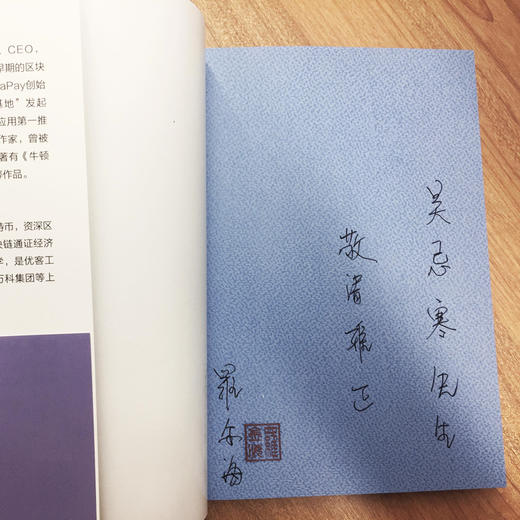 CEO,
早期的区块
aPay创始
基地”发起
应用第一推
作家，曾被
著有《牛顿
等作品。
特币，资深区
块链通证经济
学，是优客工
万科集团等上
吴忌寒先生
敬请雅正
羅金海